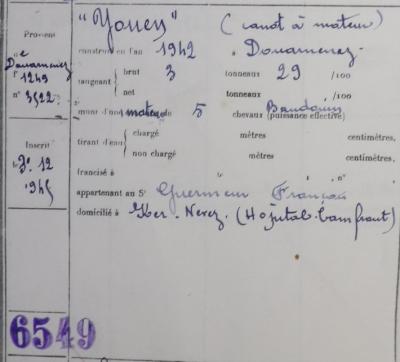 "Youen" (canot à moteur)
Provient
de Douarnenez
fo 1249
n° 3522
construit en l'an 1942 à Douarnenez
jaugeant brut 3 tonneaux 29 /100
net tonneaux /100
muni d'un moteur de 5 chevaux (puissance effective) Baudouin
tirant d'eau chargé mètres centimètres,
non chargé mètres centimètres,
francisé à le , n°
Inscrit
12
1945
appartenant au Sr Guermeur François
domicilié à Ker-Nevez. (Hôpital-Camfrout)
6549